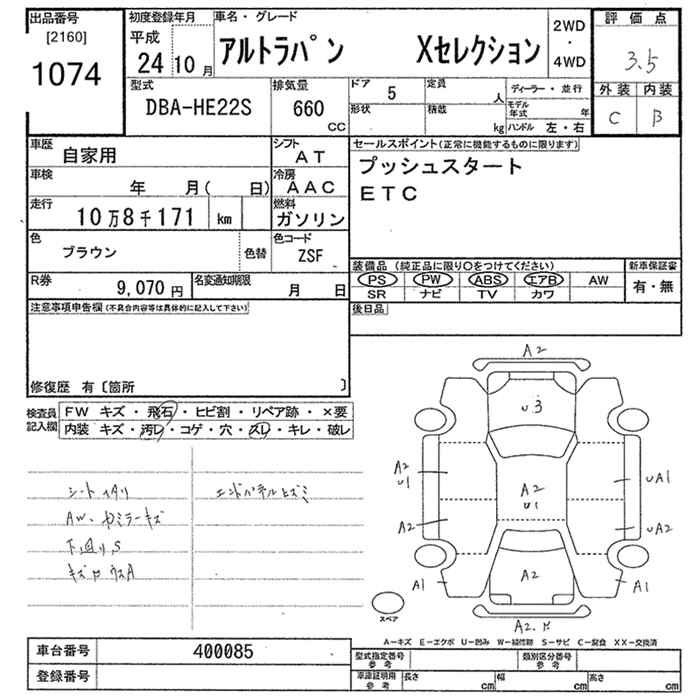 出品番号
[2160]
1074
初度登録年月
平成
24 10 月
車名・グレード
アルトラパン Xセレクション
2WD
・
4WD
評価点
3.5
外装 内装
C B
型式
DBA-HE22S
排気量
660
CC
ドア 5
定員 人
形状
積載 kg
ディーラー・並行
モデル年式 年
ハンドル 左・右
車歴 自家用
シフト AT
車検 年 月( 日)
冷房 AAC
走行 10万8千171 km
燃料 ガソリン
色 ブラウン 色替
色コード ZSF
R券 9,070 円
名変通知期限 月 日
セールスポイント(正常に機能するものに限ります)
プッシュスタート
ETC
装備品 (純正品に限り○をつけてください) 新車保証書
PS PW ABS エアB AW 有・無
SR ナビ TV カワ
後日品
注意事項申告欄(不具合内容等は具体的に記入して下さい)
修復歴 有〔箇所 〕
検査員記入欄
FW キズ・飛石・ヒビ割・リペア跡・×要
内装 キズ・汚レ・コゲ・穴・スレ・キレ・破レ
シートヘタリ
エンドパネルヒズミ
AW、ドアミラーキズ
下廻りS
A2
U3
A2
U1
A2
U1
UA1
A2
UA2
A1
A2
A1
スペア
A-キズ E-エクボ U-凹み W-補修跡 S-サビ C-腐食 XX-交換済
車台番号 400085
登録番号
型式指定番号 参考
類別区分番号 参考
車庫証明用 参考
長さ cm
幅 cm
高さ cm